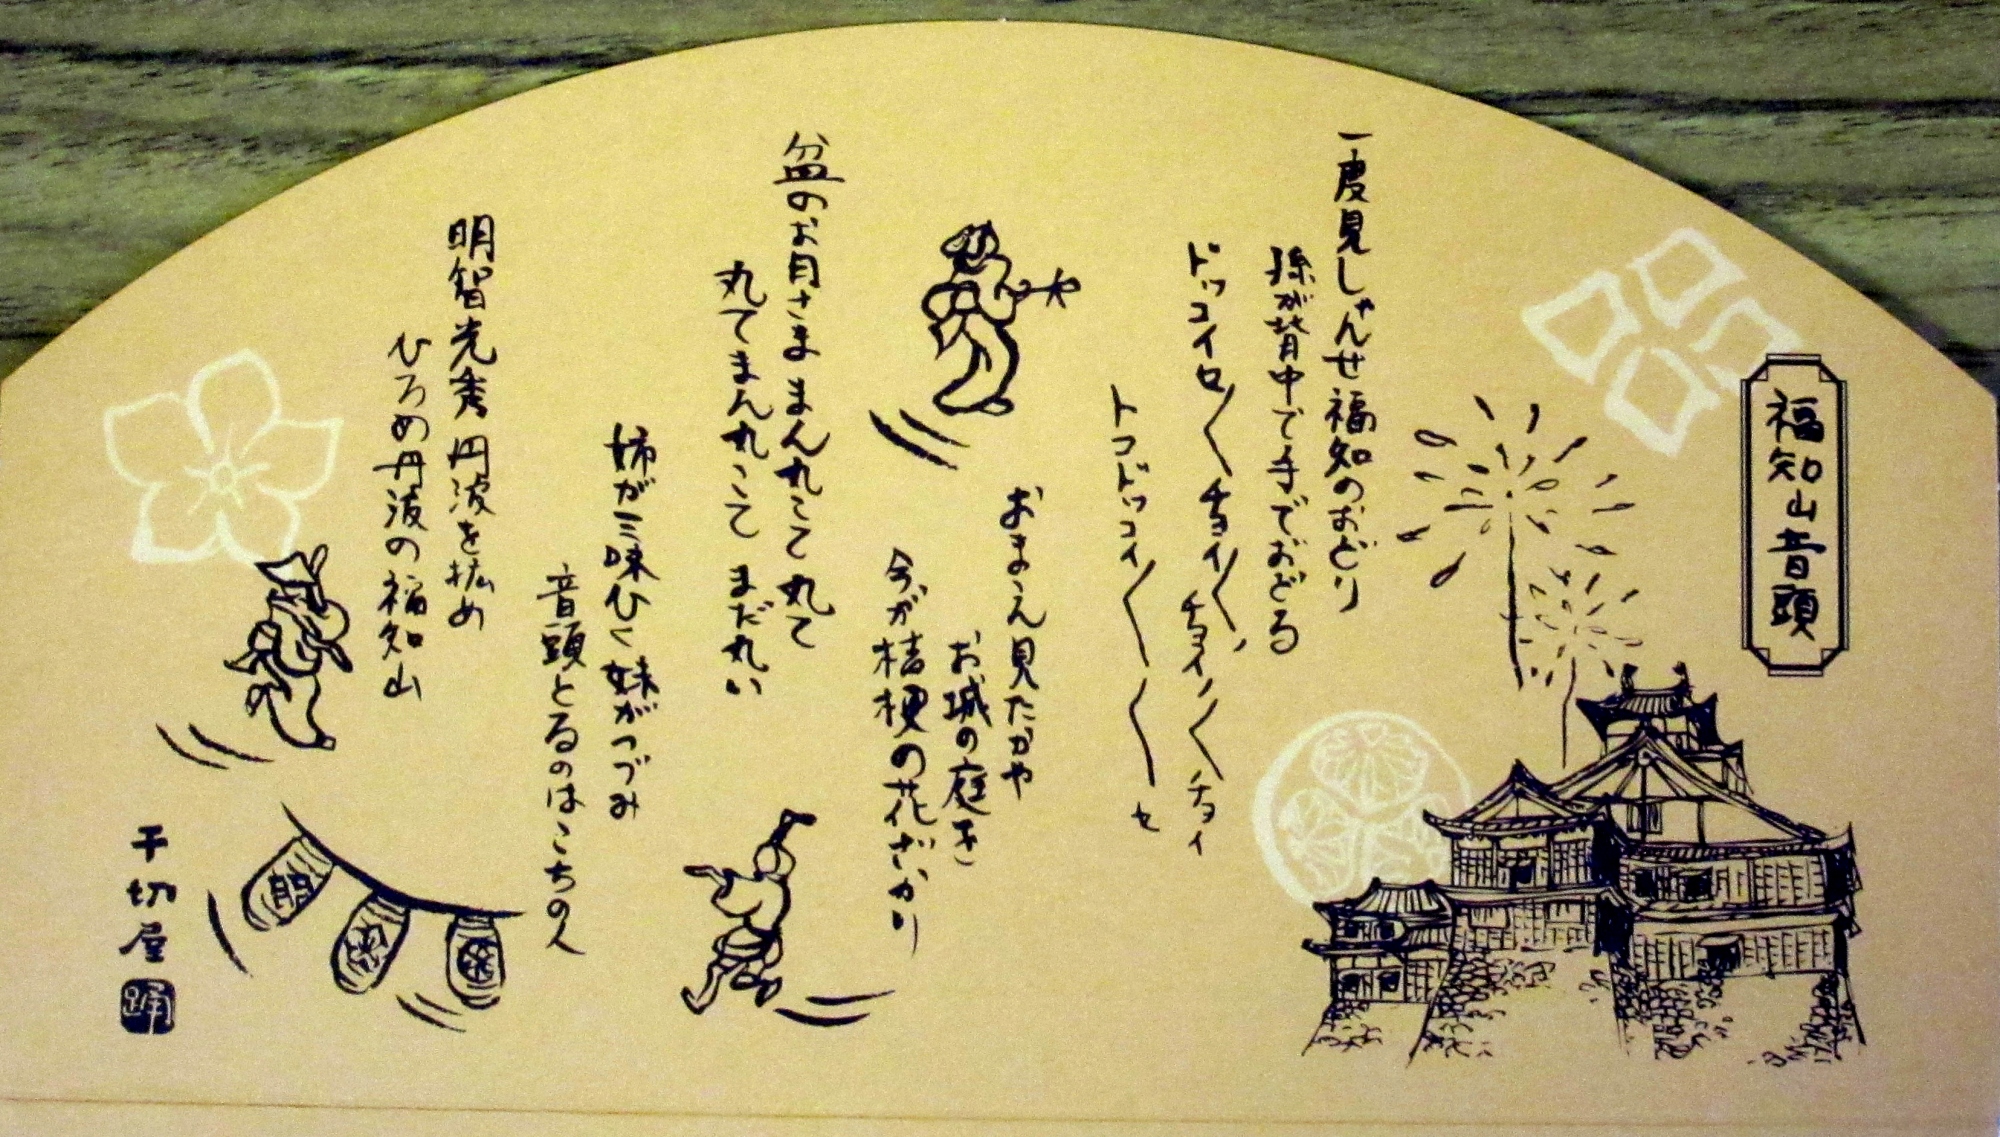 福知山音頭
一度見しゃんせ福知のおどり
孫が背中で手でおどる
ドッコイセ〱 チョイ〱、チョイ〱チョイ
トコドッコイ〱〱セ
おまえ見たかや
お城の庭を
今が桔梗の花ざかり
盆のお月さま まん丸こて丸て
丸てまん丸こて まだ丸い
姉が三味ひく妹がつづみ
音頭とるのはこちの人
明智光秀 丹波を拡め
ひろめ丹波の福知山
千切屋
踊
明